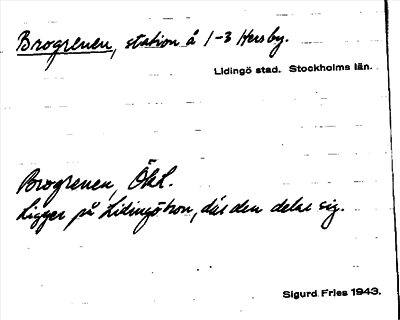 Brogrenen, station å 1-3 Hersby.
Lidingö stad. Stockholms län.
Brogrenen, ÖkL.
Ligger på Lidingöbron, där den delar sig.
Sigurd Fries 1943.